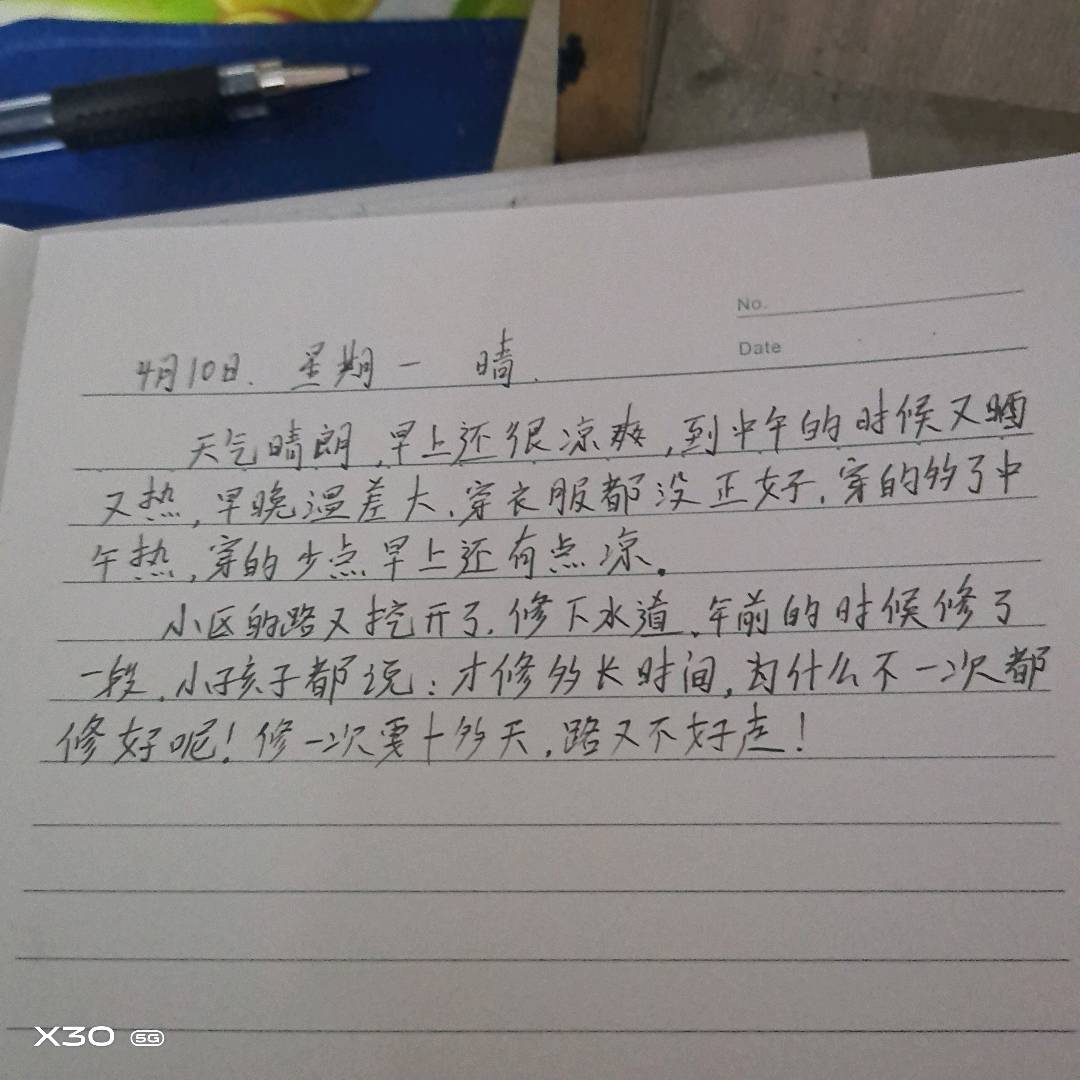 No.
Date
4月10日. 星期一 晴.
天气晴朗,早上还很凉爽,到中午的时候又晒
又热,早晚温差大,穿衣服都没正好,穿的多了中
午热,穿的少点早上还有点凉。
小区的路又挖开了,修下水道,年前的时候修了
一段,小孩子都说:才修多长时间,为什么不一次都
修好呢!修一次要十多天,路又不好走!
X30 5G